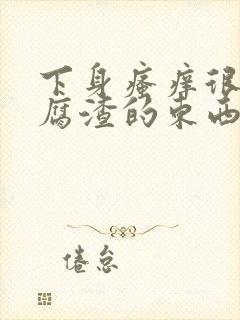 下身瘙痒很
腐渣的东西
倦怠